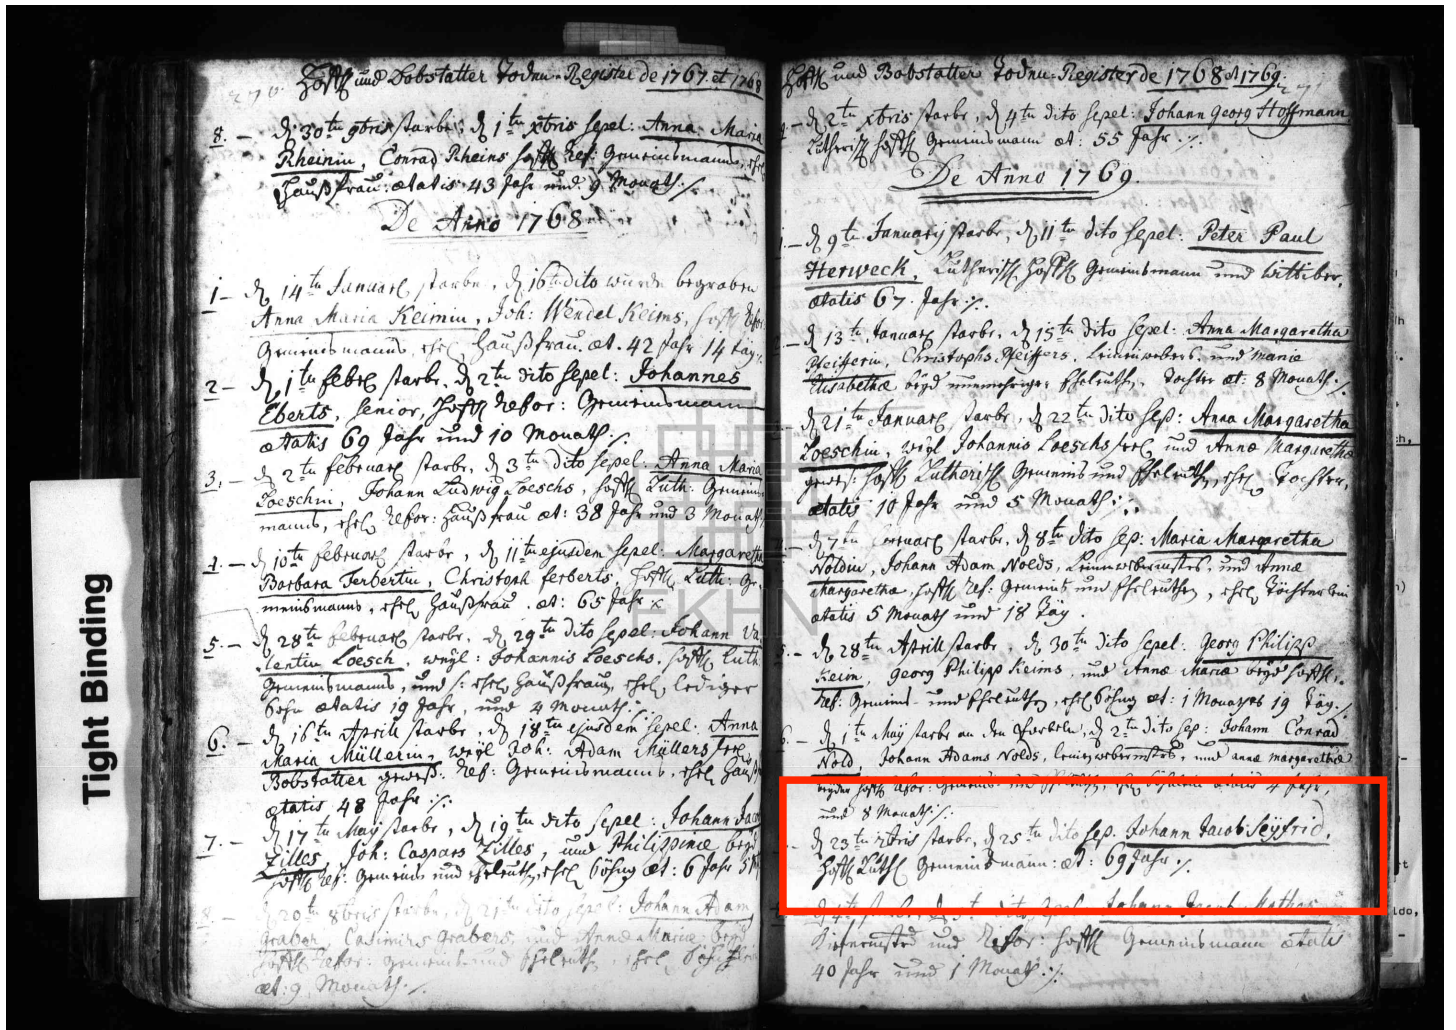 Hofh und Bobstatter Toden-Register de 1767 et 1768
8. — d 30tn 9bris starbe, d 1tn xbris sepel: Anna Maria
Rheinin, Conrad Rheins hofh Ref: Gemeinsmanns, ehel
Haußfrau: ætatis 43 Jahr und 9 Monath ./.
De Anno 1768
1 — d 14tn Januarӱ starbe, d 16tn dito wurde begraben
Anna Maria Keimin, Joh: Wendel Keims, hofh Refor:
Gemeinsmanns, ehel Haußfrau. æt. 42 Jahr 14 täg.
2 — d 1tn febr starbe, d 2tn dito sepel: Johannes
Eberts, senior, hofh Refor: Gemeinsmann
ætatis 69 Jahr und 10 Monath ./.
3. — d 2tn februarӱ starbe, d 3tn dito sepel: Anna Maria
Loeschin, Johann Ludwig Loeschs, hofh Luth: Gemeins
manns, ehel Refor: Haußfrau æt: 38 Jahr und 3 Monath
4. — d 10tn februarӱ starbe, d 11tn ejusdem sepel: Margaretha
Barbara ferbertin, Christoph ferberts, hofh Luth: Ge-
meinsmanns, ehel Haußfrau. æt: 65 Jahr
5. — d 28tn februarӱ starbe, d 29tn dito sepel: Johann Va-
lentin Loesch, weӱl: Johannis Loeschs, hofh luth
Gemeinsmanns, und ehel Haußfrau, ehel lediger
Sohn ætatis 19 Jahr, und 4 Monath ./.
6. — d 16tn Aprill starbe, d 18tn ejusdem sepel: Anna
Maria Müllerin, weӱl Joh: Adam Müllers
Bobstatter geweß: Ref: Gemeinsmanns, ehel Haußfr
ætatis 48 Jahr ./.
7. — d 17tn Maӱ starbe, d 19tn dito sepel: Johann Jacob
Zilles, Joh: Caspars Zilles, und Philippinæ beӱd
hofh Ref: Gemeins und eheleuth, ehel Söhng æt: 6 Jahr 5
8. — d 20tn 8bris starbe, d 21tn dito sepel: Johann Adam
Graber, Casimirs Grabers, und Annæ Mariæ beӱd
hofh Refor: gemeins und Eheleuth, ehel
æt: 9 Monath ./.
Hofh und Bobstatter Toden-Register de 1768 et 1769.
d 2tn xbris starbe, d 4tn dito sepel: Johann Georg Hoffmann
Lutherisch hofh Gemeinsmann æt: 55 Jahr ./.
De Anno 1769.
1. — d 9tn Januarӱ starbe, d 11tn dito sepel: Peter Paul
Herweck, Lutherisch hofh Gemeinsmann und Wittiber,
ætatis 67 Jahr ./.
— d 13tn Januarӱ starbe, d 15tn dito sepel: Anna Margaretha
Pfeifferin, Christophs Pfeiffers, Leinenwebers, und Mariæ
Elisabethæ beӱd Eheleuth, Tochter æt: 8 Monath ./.
d 21tn Januarӱ starbe, d 22tn dito sep: Anna Margaretha
Loeschin, weӱl Johannis Loeschs und Annæ Margarethæ
gewes: hofh Lutherisch Gemeins und Eheleuth, ehel Tochter,
ætatis 10 Jahr und 5 Monath ./.
— d 7tn februarӱ starbe, d 8tn dito sep: Maria Margaretha
Noldin, Johann Adam Nolds, Leinewebermstrs, und Annæ
Margarethæ, hofh Ref: Gemeins und Eheleuthen, ehel Töchterlein
ætatis 5 Monath und 18 Täg.
5. — d 28tn Aprill starbe, d 30tn dito sepel: Georg Philipp
Keim, Georg Philipp Keims, und Annæ Mariæ beӱd hofh
Ref: Gemeins- und Eheleuthen, ehel Söhng æt: 1 Monaths 19 Täg ./.
6. — d 1tn Maӱ starbe an den Porbeln, d 2tn dito sep: Johann Conrad
Nold, Johann Adams Nolds, leinewebermstrs, und annæ margarethæ
beӱder hofh Refor: Gemeins und ætatis 4 Jahr,
und 8 Monath ./.
d 23tn xbris starbe, d 25tn dito sep. Johann Jacob Seӱfrid,
hofh Luth Gemeindmann: æt: 69 Jahr ./.
dito Johann Jacob Mathes
Kiefermstr und Refor: hofh Gemeinsmann ætatis
40 Jahr und 1 Monath ./.
Tight Binding
EKHN